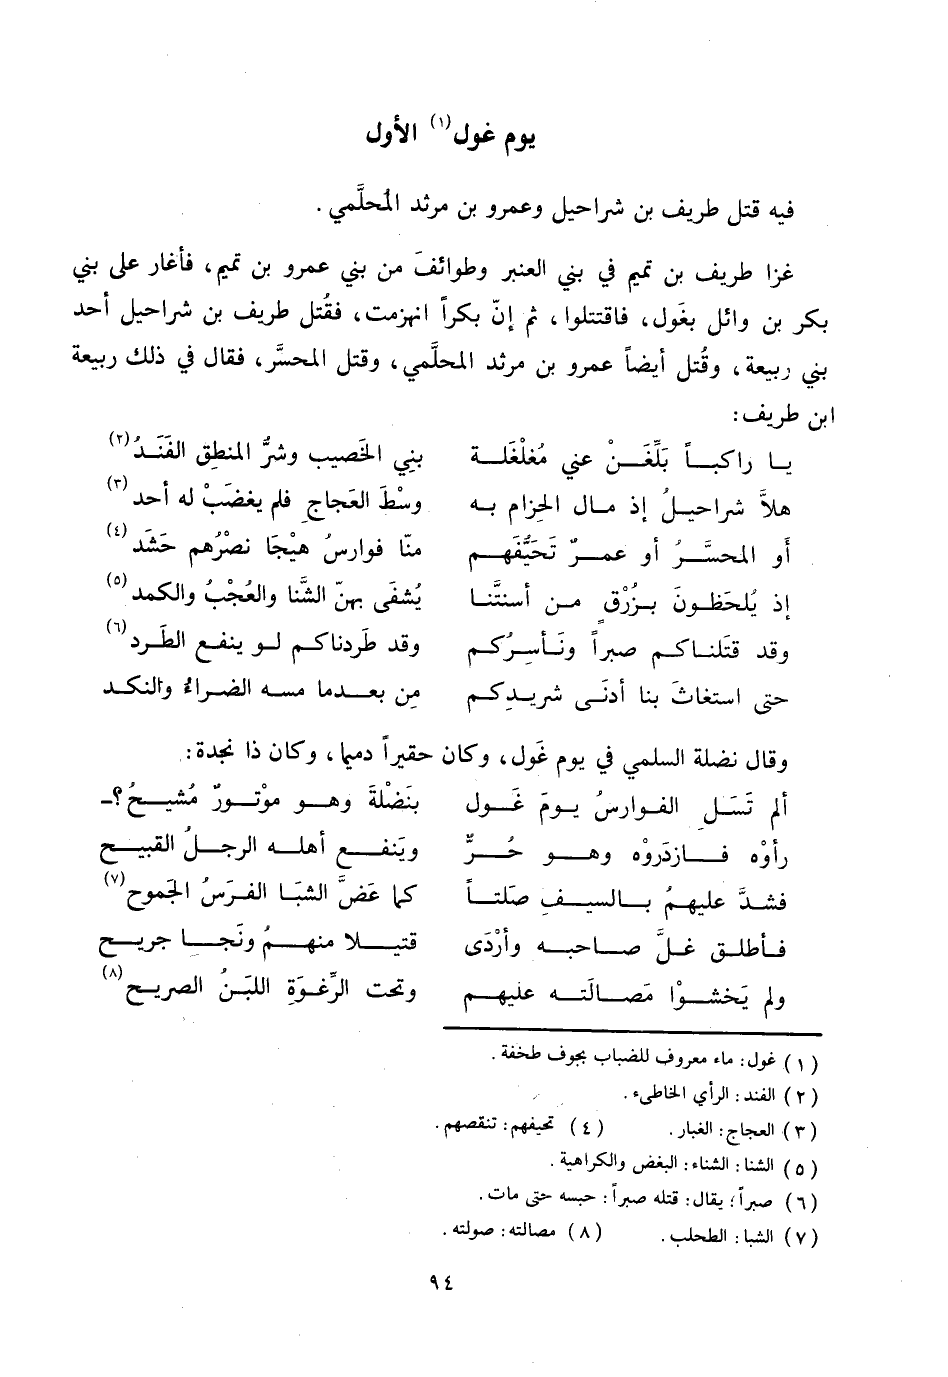 يوم غول(١) الأول
فيه قتل طريف بن شراحيل وعمرو بن مرثد المحلَّمي .
غزا طريف بن تميم في بني العنبر وطوائفَ من بني عمرو بن تميم، فأغار على بني
بكر بن وائل بغَول، فاقتتلوا، ثم إنّ بكراً انهزمت، فقُتل طريف بن شراحيل أحد
بني ربيعة، وقُتل أيضاً عمرو بن مرثد المحلَّمي، وقتل المحسَّر، فقال في ذلك ربيعة
ابن طريف:
يا راكباً بَلِّغَنْ عني مُغلْغَلة بنِي الخَصيب وشرُّ المنطق الفَنَدُ(٢)
هلاَّ شراحيلُ إذ مال الحِزام به وسْطَ العَجاج فلم يغضَبْ له أحد(٣)
أو المحسَّرُ أو عمرٌ تَحَيَّفَهم منّا فوارسُ هيْجَا نصرُهم حَشَد(٤)
إذ يُلحَظونَ بزُرْقٍ من أسنتَّنا يُشفَى بهنّ الشَّنا والعُجْبُ والكمد(٥)
وقد قتَلناكم صبراً ونَأسِرُكم وقد طَردناكم لو ينفع الطَرد(٦)
حتى استغاثَ بنا أدنَى شريدِكم مِن بعدما مسه الضراء والنكد
وقال نضلة السلمي في يوم غَول، وكان حقيراً دميما، وكان ذا نجدة:
ألم تَسَلِ الفوارسُ يومَ غَول بنَضْلةَ وهو موْتورٌ مُشيحُ؟
رأوْه فازدَروْه وهو حُرٌّ وينفع أهله الرجلُ القبيح
فشدَّ عليهمُ بالسيفِ صَلتاً كما عَضَّ الشبَا الفرَسُ الجَموح(٧)
فأطلق غلَّ صاحبه وأرْدَى قتيلا منهمُ ونَجا جريح
ولم يَخشوْا مَصالَته عليهم وتحت الرِّغوَةِ اللبَنُ الصريح(٨)
(١) غول: ماء معروف للضباب بجوف طخفة .
(٢) الفند: الرأي الخاطىء .
(٣) العجاج: الغبار . (٤) تحيفهم: تنقصهم .
(٥) الشنا: الشناء: البغض والكراهية .
(٦) صبراً؛ يقال: قتله صبراً: حبسه حتى مات .
(٧) الشبا: الطحلب . (٨) مصالته: صولته .
٩٤